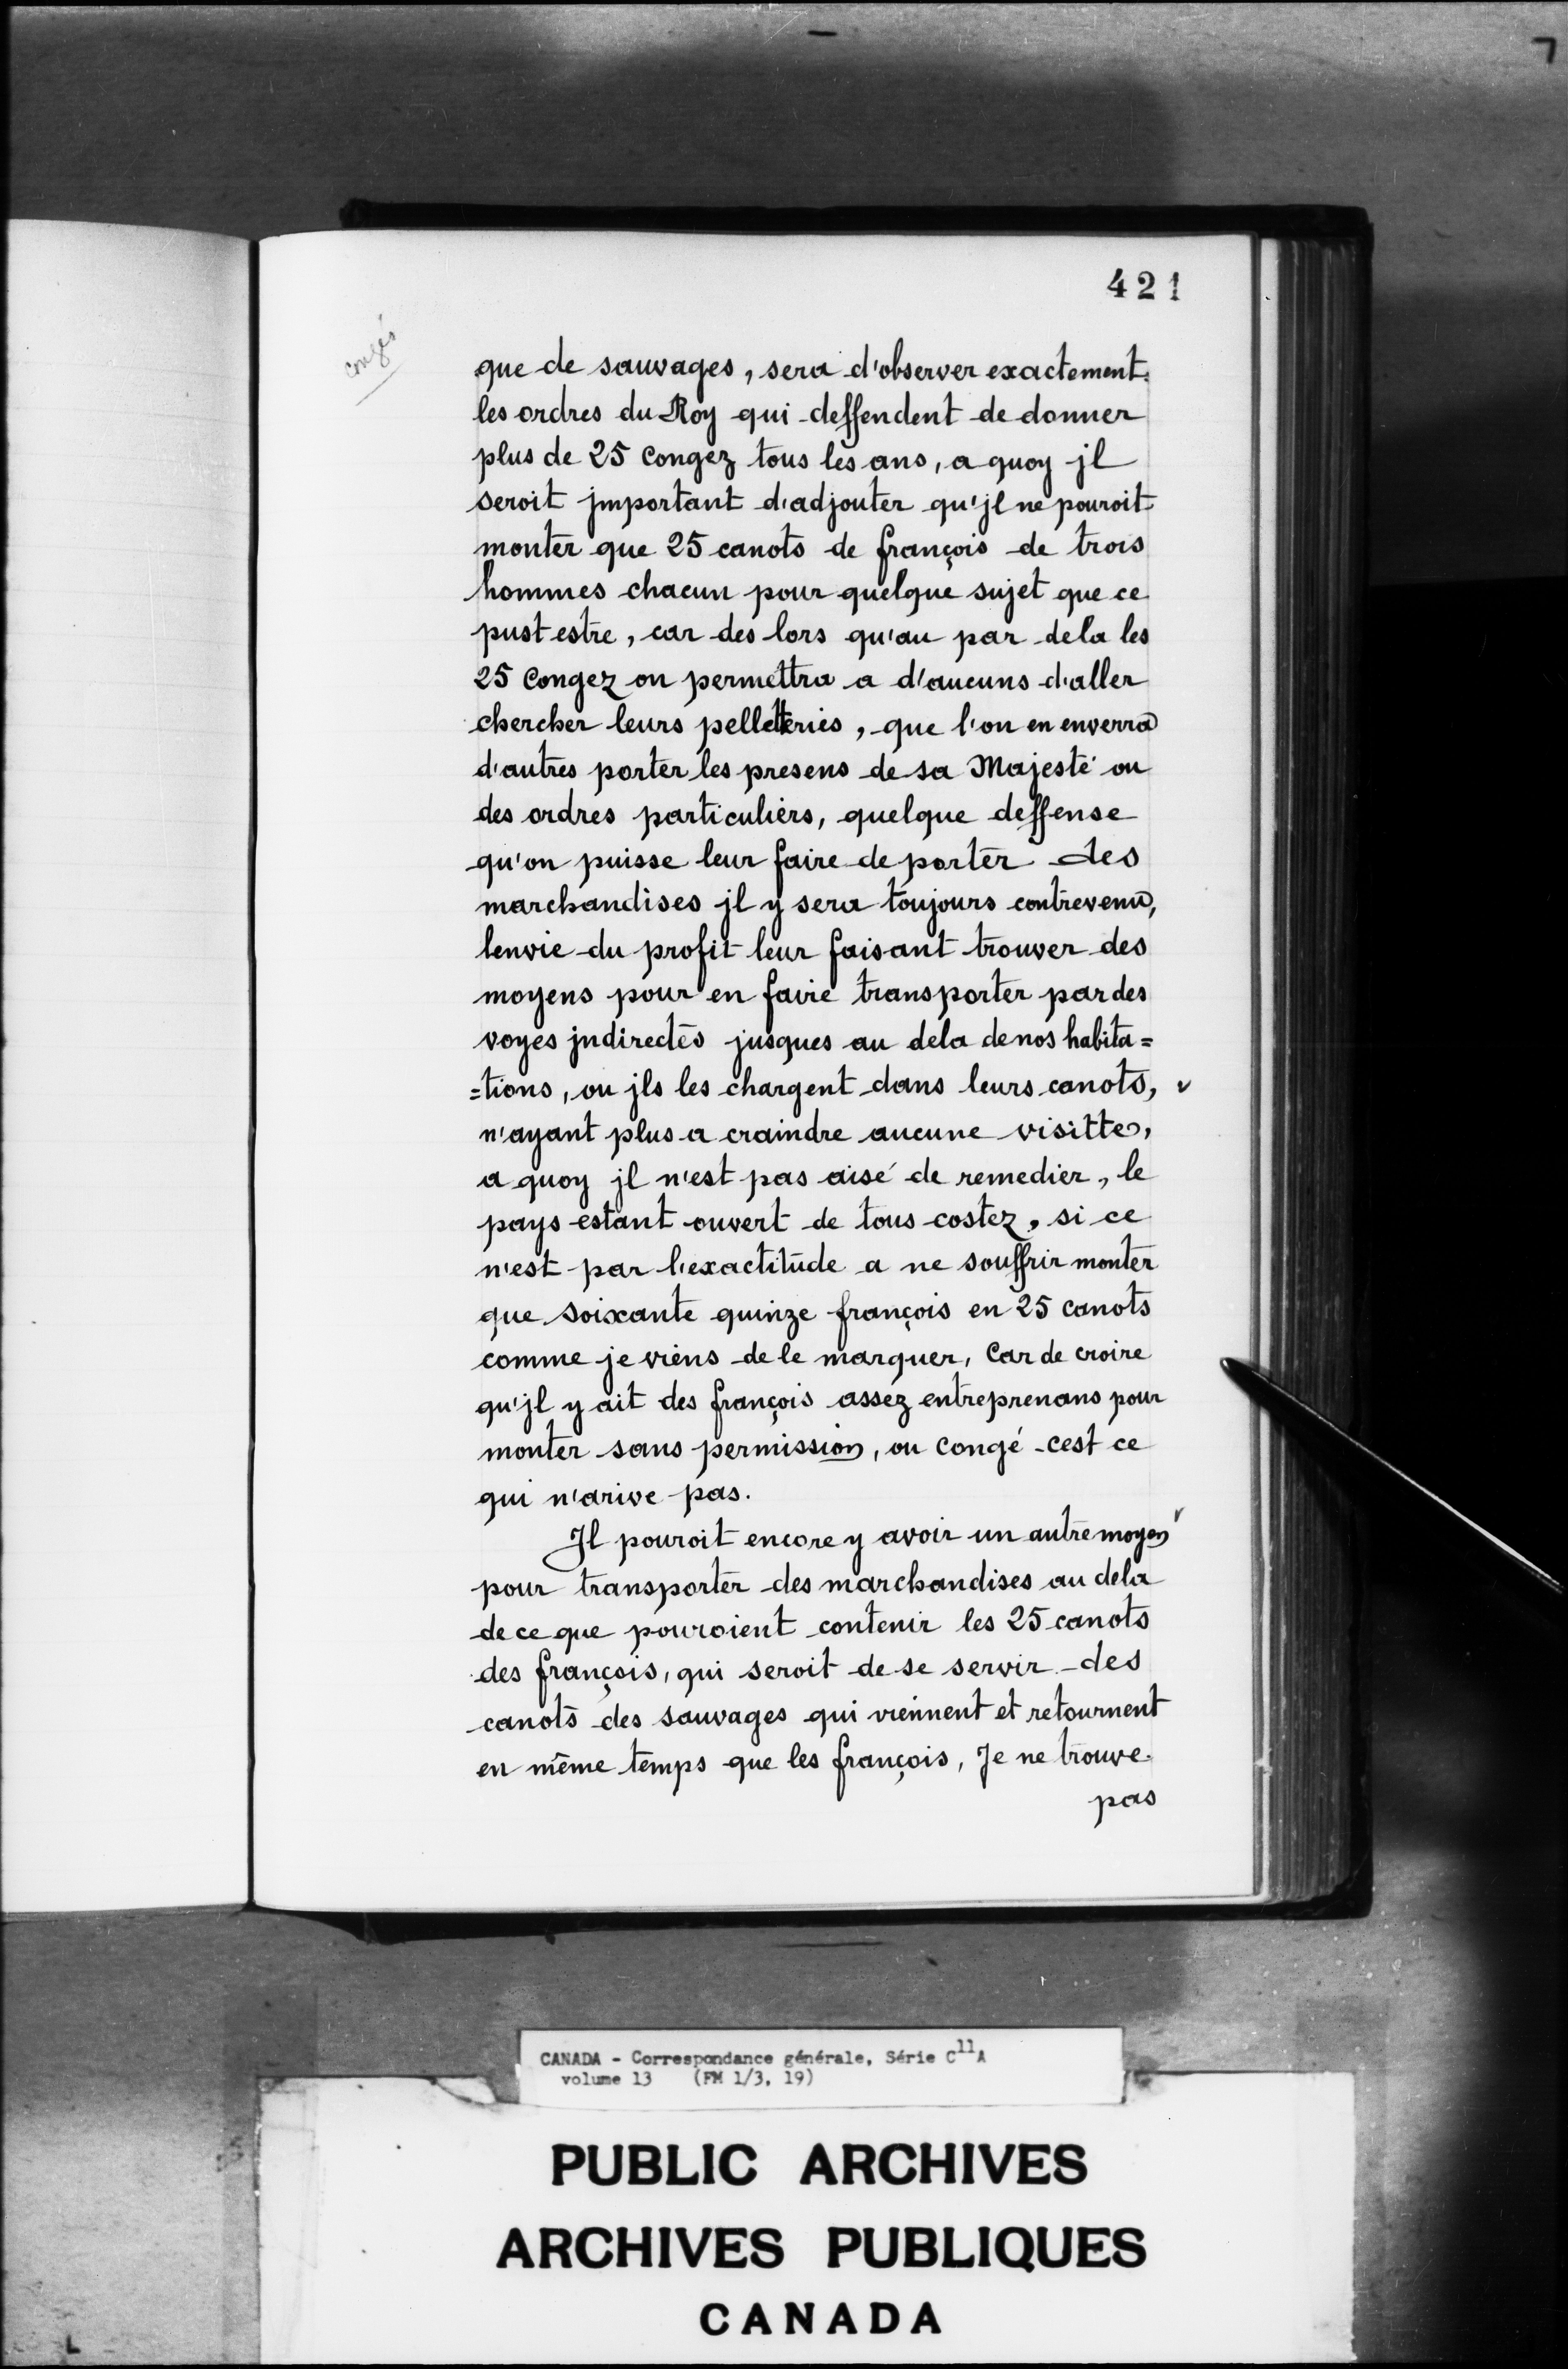 421
congés
que de sauvages, sera d'observer exactement
les ordres du Roy qui deffendent de donner
plus de 25 Congez tous les ans, a quoy jl
seroit jmportant d'adjouter qu'jl ne pouroit
monter que 25 canots de françois de trois
hommes chacun pour quelque sujet que ce
pust estre, car des lors qu'au par dela les
25 Congez on permettra a d'aucuns d'aller
chercher leurs pelletteries, que l'on en enverra
d'autres porter les presens de sa Majesté ou
des ordres particuliers, quelque deffense
qu'on puisse leur faire de porter des
marchandises jl y sera toujours contrevenu,
lenvie du profit leur faisant trouver des
moyens pour en faire transporter par des
voyes jndirectes jusques au dela de nos habita=
=tions, ou jls les chargent dans leurs canots,
n'ayant plus a craindre aucune visitte,
a quoy jl n'est pas aisé de remedier, le
pays estant ouvert de tous costez, si ce
n'est par l'exactitude a ne souffrir monter
que soixante quinze françois en 25 canots
comme je viens de le marquer, Car de croire
qu'jl y ait des françois assez entreprenans pour
monter sans permission, ou congé cest ce
qui n'arive pas.
Jl pouroit encore y avoir un autre moyen
pour transporter des marchandises au dela
de ce que pouroient contenir les 25 canots
des françois, qui seroit de se servir des
canots des sauvages qui viennent et retournent
en même temps que les françois, Je ne trouve
pas
CANADA - Correspondance générale, Série C11A
volume 13 (FM 1/3, 19)
PUBLIC ARCHIVES
ARCHIVES PUBLIQUES
CANADA